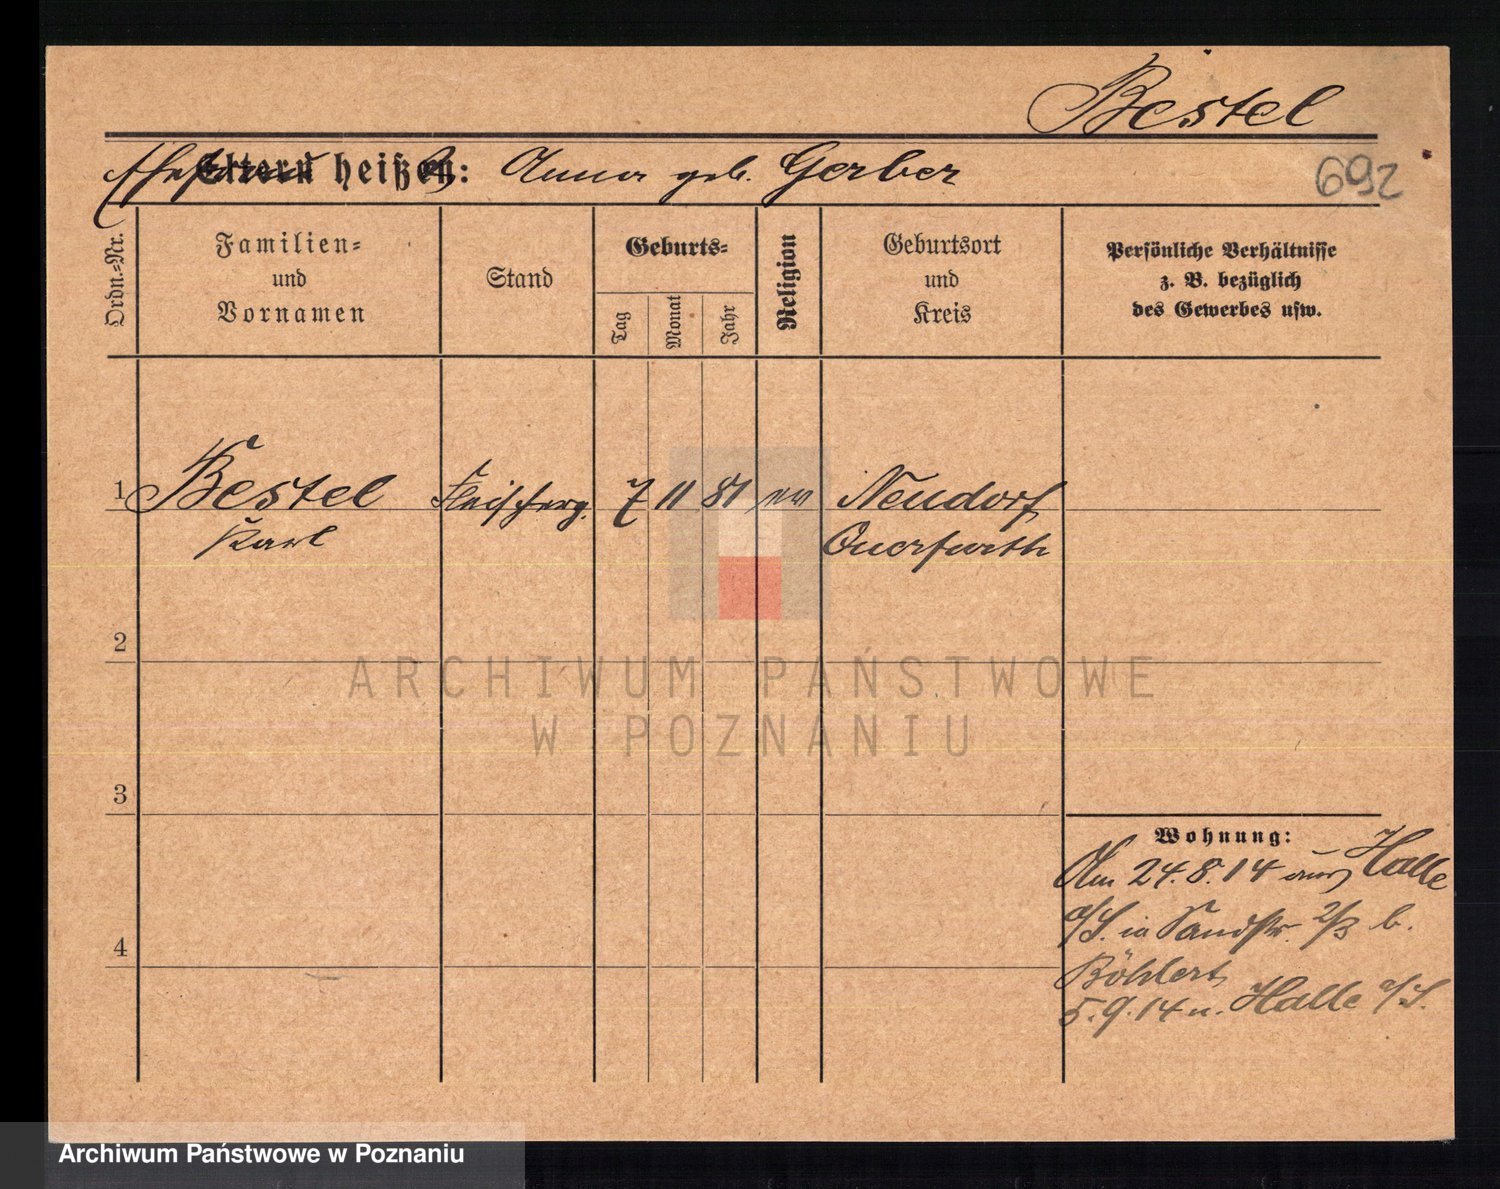 Bestel
Ehefrau heißt: Anna geb. Gerber
692
Ordn.=Nr.
Familien=
und
Vornamen
Stand
Geburts=
Tag
Monat
Jahr
Religion
Geburtsort
und
Kreis
Persönliche Verhältnisse
z. B. bezüglich
des Gewerbes usw.
1 Bestel Fleischerg. 7 11 81 ev Neudorf
Karl Querfurth
2
ARCHIWUM PAŃSTWOWE
W POZNANIU
3
Wohnung:
Am 24.8.14 aus Halle
a/S. in Sandstr. 2/3 b.
4
Böhlert
5.9.14 n. Halle a/S.
Archiwum Państwowe w Poznaniu